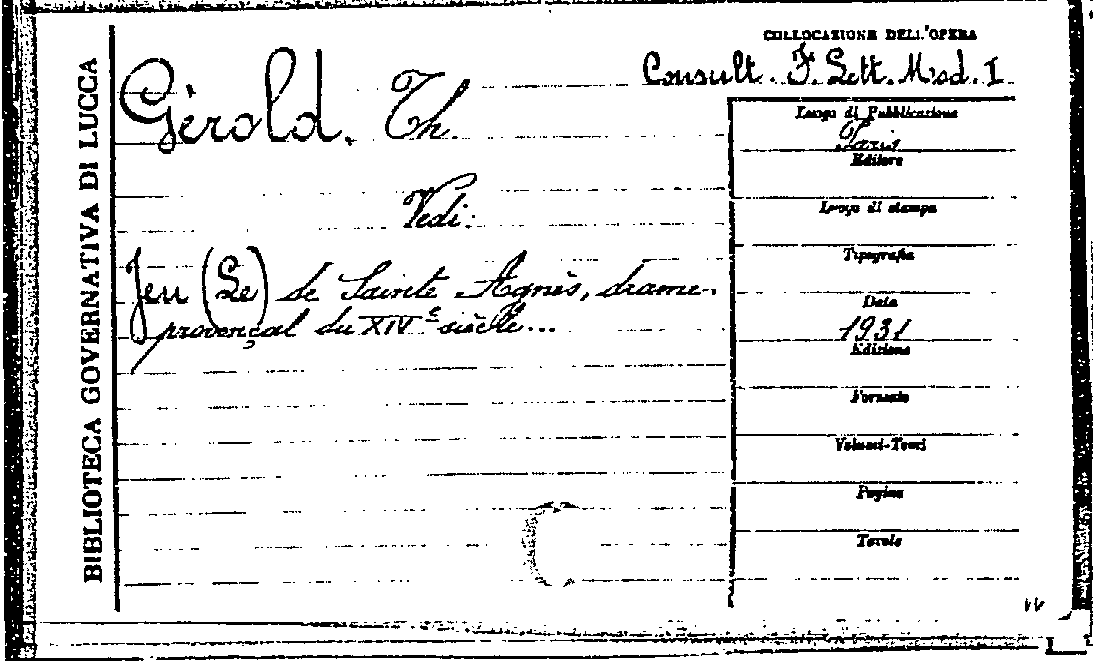 BIBLIOTECA GOVERNATIVA DI LUCCA
COLLOCAZIONE DELL'OPERA
Consult. F. Lett. Mod. I
Gèrold. Th.
Vedi:
Jeu (Le) de Sainte Agnès, drame
provençal du XIVe siècle...
Luogo di Pubblicazione
Paris
Editore
Luogo di stampa
Tipografia
Data
1931
Edizione
Formato
Volumi-Tomi
Pagine
Tavole